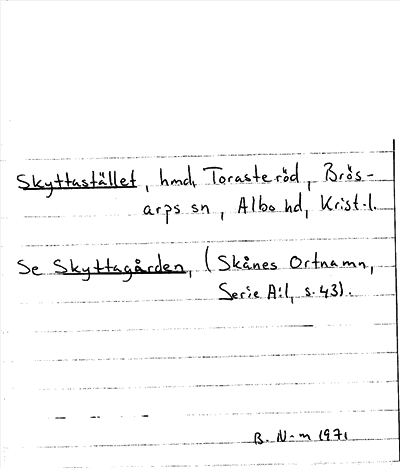 Skyttastället, hmd, Torasteröd, Brös-
arps sn, Albo hd, Krist.l.
Se Skyttagården, (Skånes Ortnamn,
Serie A:1, s.43).
B. N-m 1971